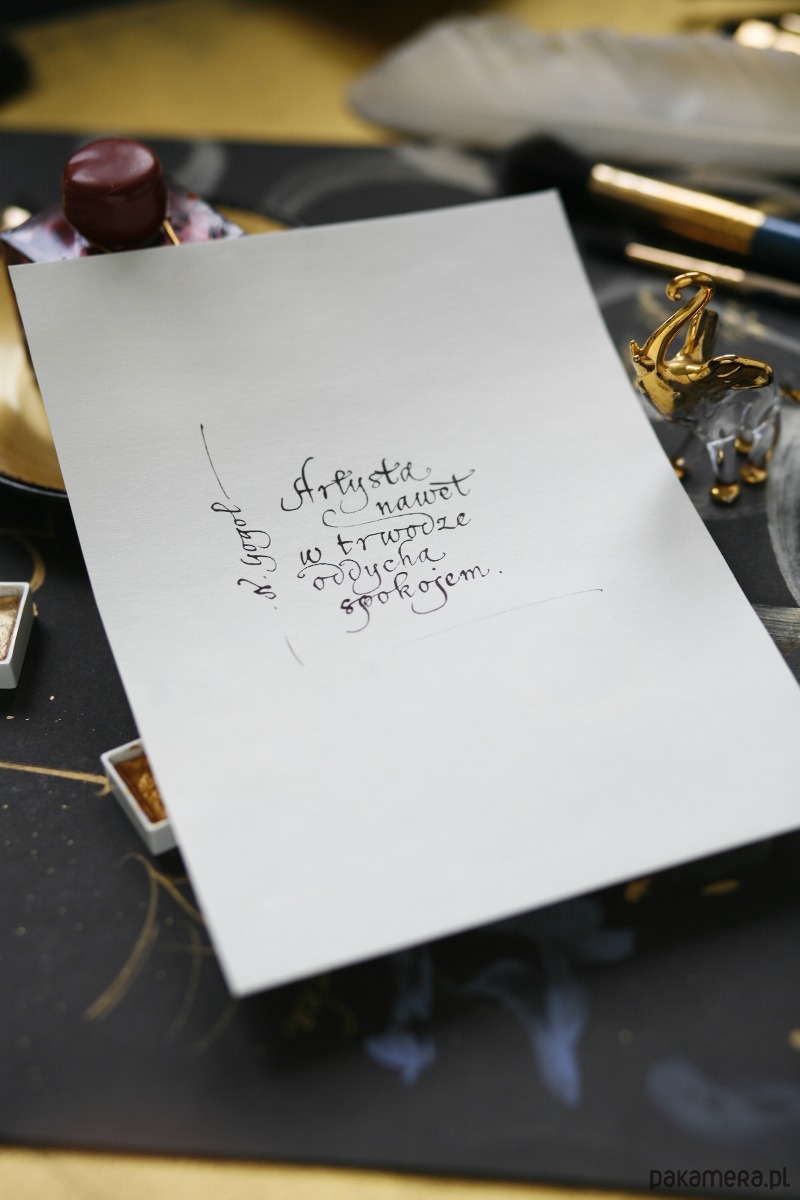 Artysta
nawet
w trwodze
oddycha
spokojem.
N. Gogol
pakamera.pl